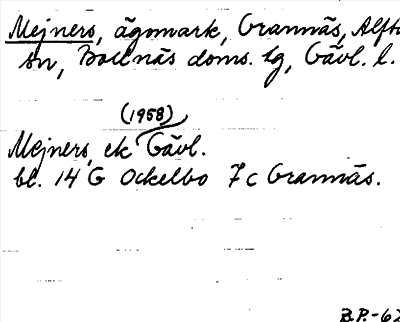 Mejners, ägomark, Grannäs, Alfta
sn, Bollnäs doms. lg, Gävl. l.
(1958)
Mejners, ek Gävl.
bl. 14 G Ockelbo 7c Grannäs.
B.P.-62